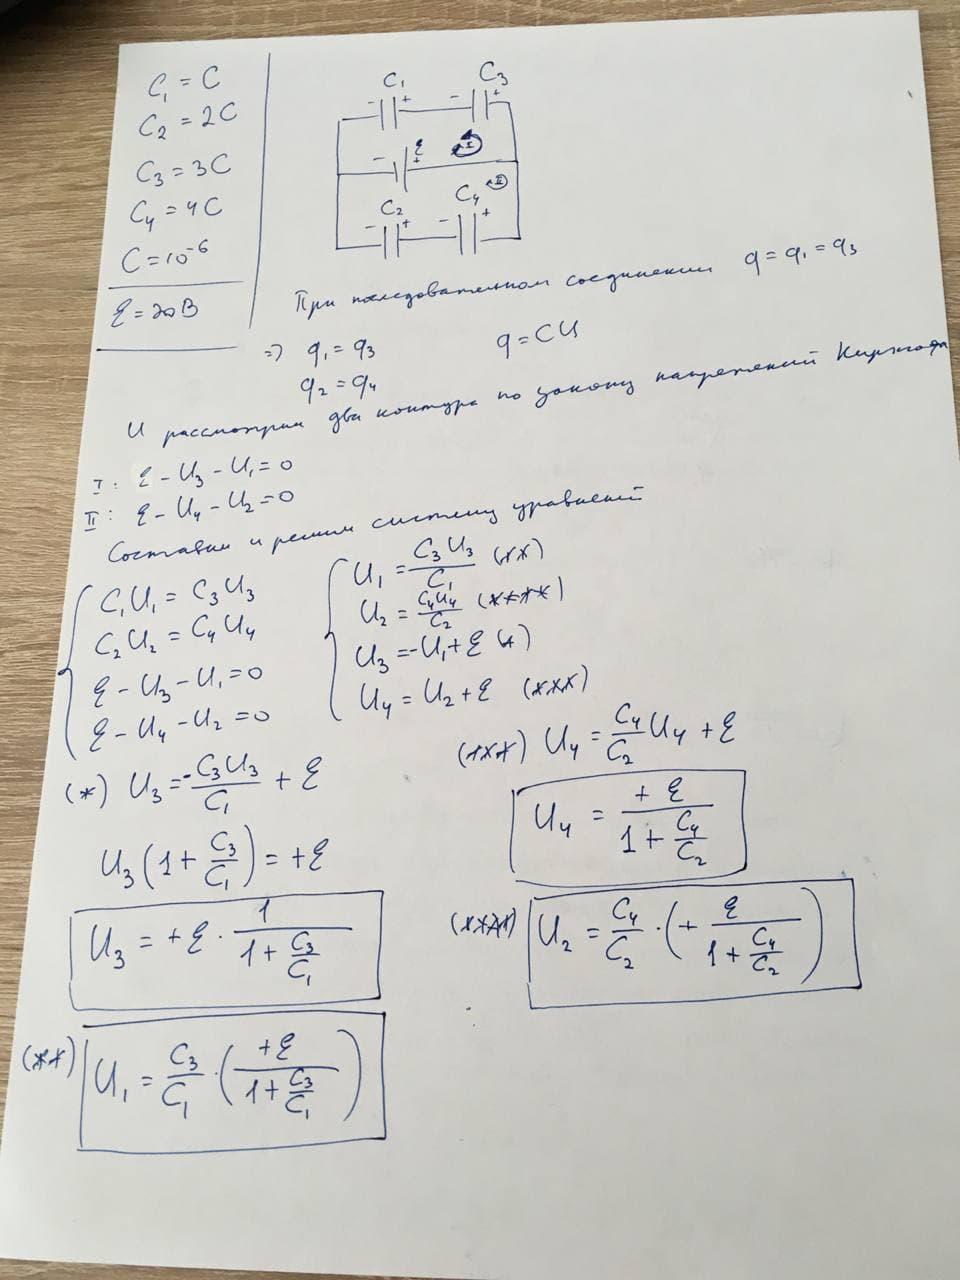 C₁ = C
C₂ = 2C
C₃ = 3C
C₄ = 4C
C = 10⁻⁶
Ɛ = 20В
C₁ C₃
- + - +
- Ɛ + I
C₂ C₄ II
- + - +
При последовательном соединении q = q₁ = q₃
=> q₁ = q₃ q = CU
q₂ = q₄
И рассмотрим два контура по закону напряжений Кирхгофа
I: Ɛ - U₃ - U₁ = 0
II: Ɛ - U₄ - U₂ = 0
Составим и решим систему уравнений
{ C₁U₁ = C₃U₃
C₂U₂ = C₄U₄
Ɛ - U₃ - U₁ = 0
Ɛ - U₄ - U₂ = 0
{ U₁ = C₃U₃/C₁ (**)
U₂ = C₄U₄/C₂ (****)
U₃ = -U₁ + Ɛ (*)
U₄ = U₂ + Ɛ (***)
(*) U₃ = -C₃U₃/C₁ + Ɛ
U₃(1 + C₃/C₁) = +Ɛ
U₃ = +Ɛ · 1/(1 + C₃/C₁)
(**) U₁ = C₃/C₁ · (+Ɛ/(1 + C₃/C₁))
(***) U₄ = C₄/C₂ U₄ + Ɛ
U₄ = +Ɛ/(1 + C₄/C₂)
(****) U₂ = C₄/C₂ · (+ Ɛ/(1 + C₄/C₂))